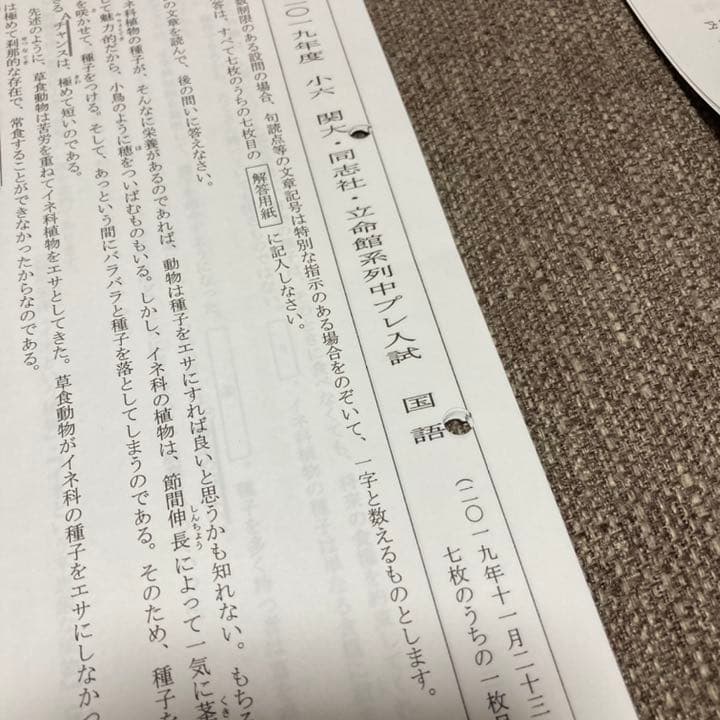 二〇一九年度 小六 関大・同志社・立命館系列中プレ入試 国語
(二〇一九年十一月二十三
七枚のうちの一枚目
数制限のある設問の場合、句読点等の文章記号は特別な指示のある場合をのぞいて、一字と数えるものとします。
答は、すべて七枚のうちの七枚目の 解答用紙 に記入しなさい。
の文章を読んで、後の問いに答えなさい。
イネ科植物の種子が、そんなに栄養があるのであれば、動物は種子をエサにすれば良いと思うかも知れない。もちろ
して魅力的だから、小鳥のように穂をついばむものもいる。しかし、イネ科の植物は、節間伸長によって一気に茎
を咲かせて、種子をつける。そして、あっという間にバラバラと種子を落としてしまうのである。そのため、種子を
るAチャンスは、極めて短いのである。
先述のように、草食動物は苦労を重ねてイネ科植物をエサとしてきた。草食動物がイネ科の種子をエサにしなかっ
は極めて刹那的な存在で、常食することができなかったからなのである。